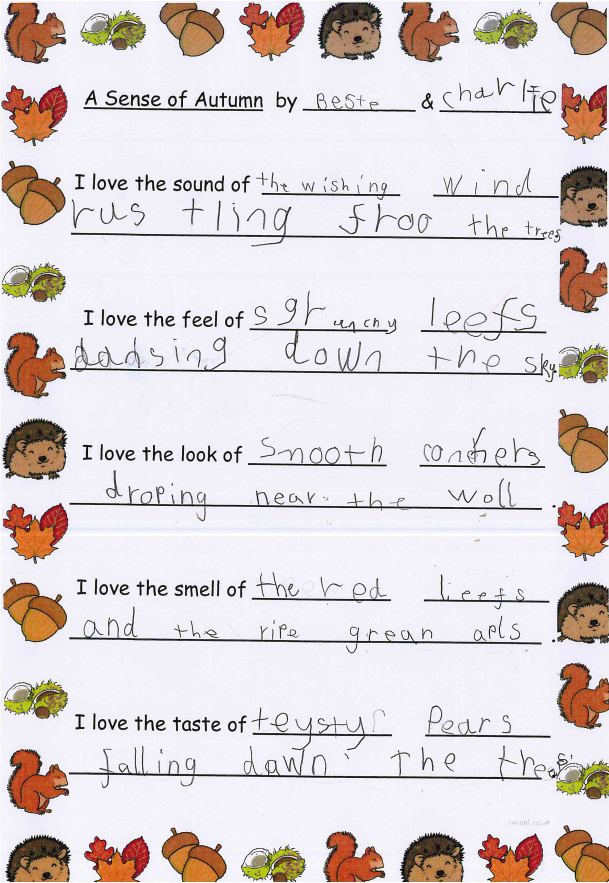 A Sense of Autumn by Beste & charlie
I love the sound of the wishing wind
rustling froo the trees
I love the feel of sgrunchy leefs
dadsing down the sky.
I love the look of smooth conkers
droping near the woll .
I love the smell of the red leefs
and the ripe grean apls .
I love the taste of teysty Pears
falling dawn the trees.